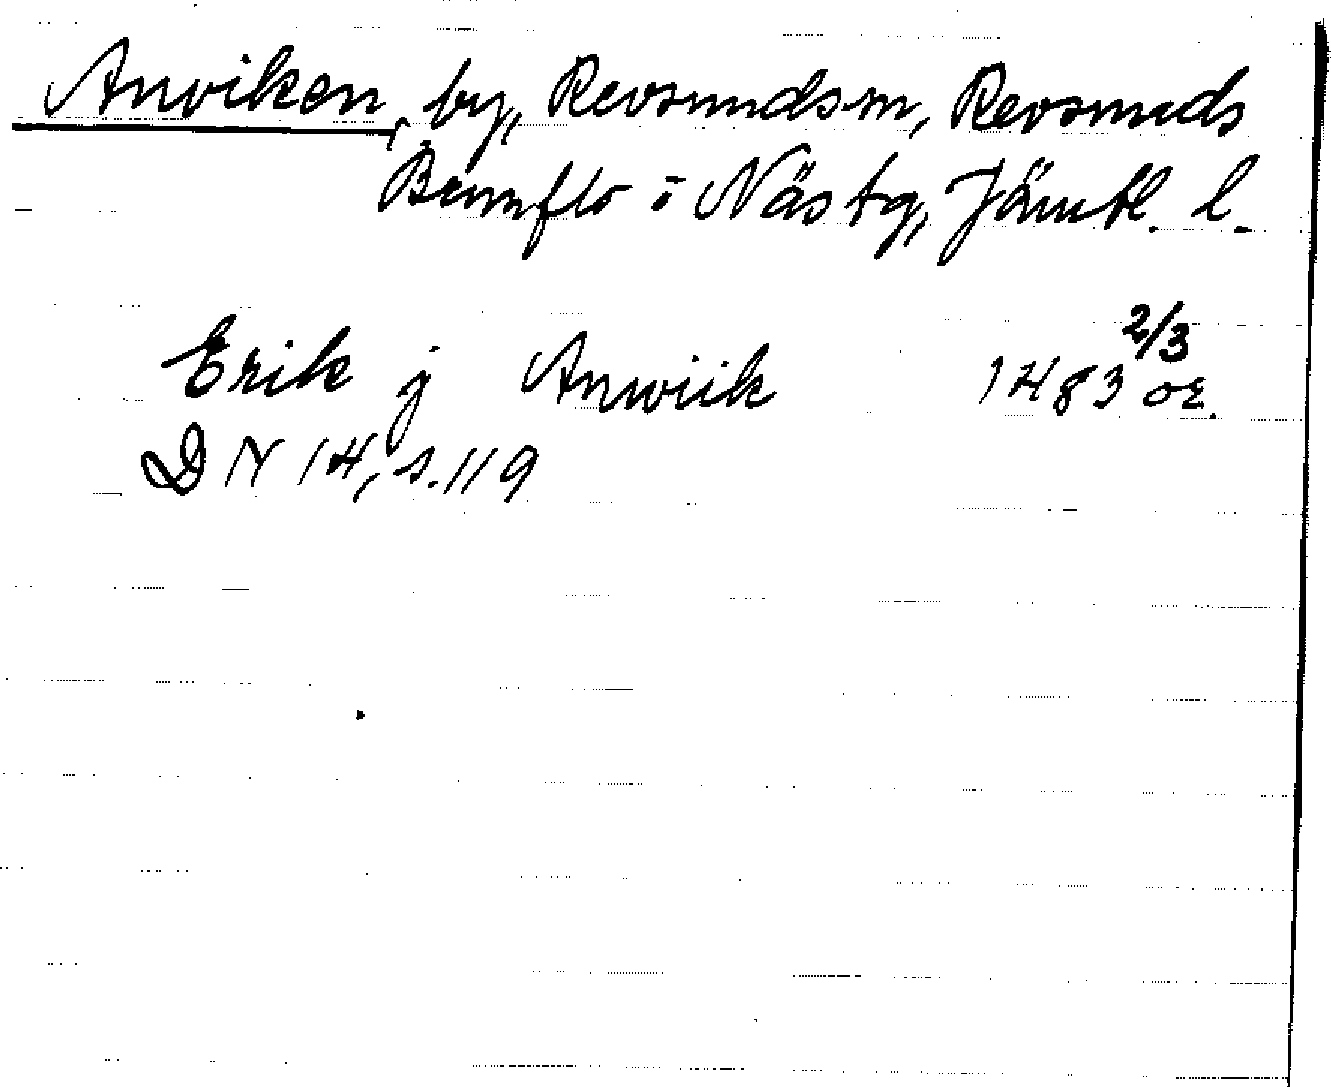 Anviken, by, Revsundsm, Revsunds
Brunflo o Näs tg, Jämtl. l.
Erik j Anwiik 1483 2/3 or.
DN 14, s. 119